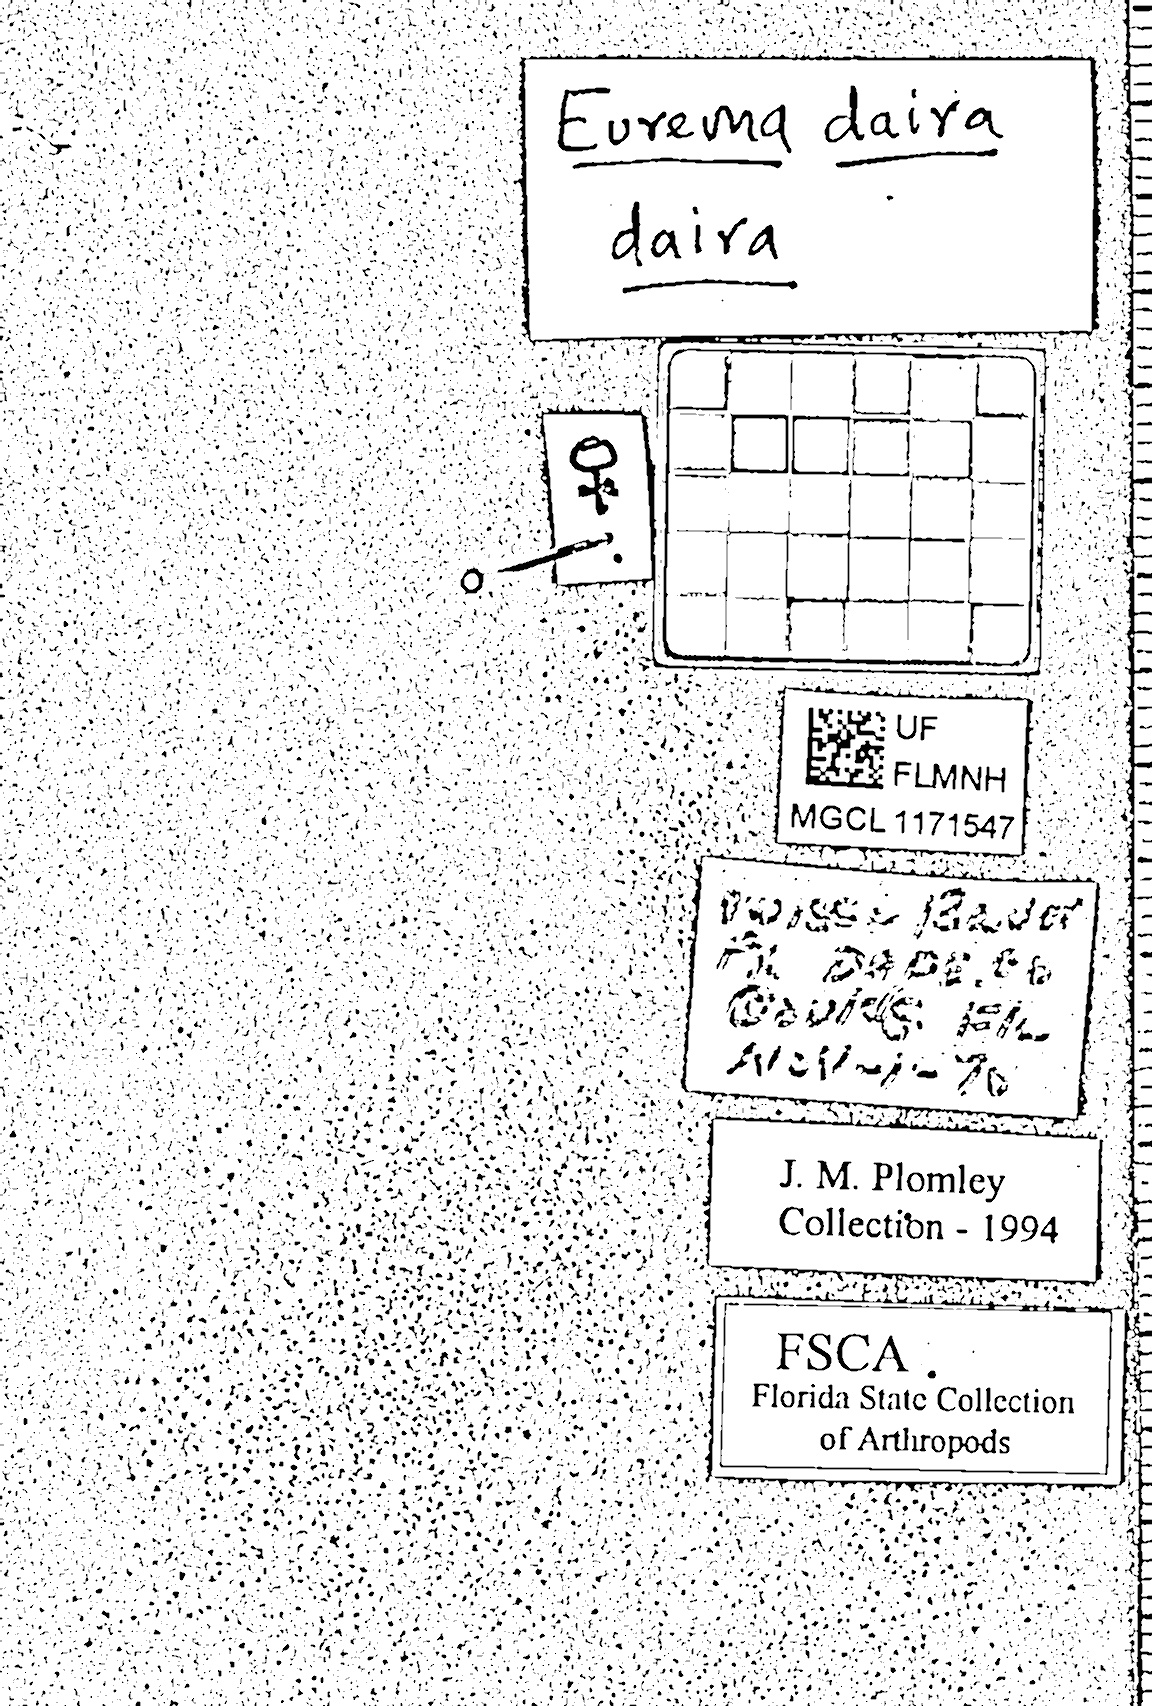 Eurema daira
daira
♀
UF
FLMNH
MGCL 1171547
FL DADE. Co
FIL
NOV-1-70
J. M. Plomley
Collection - 1994
FSCA
Florida State Collection
of Arthropods